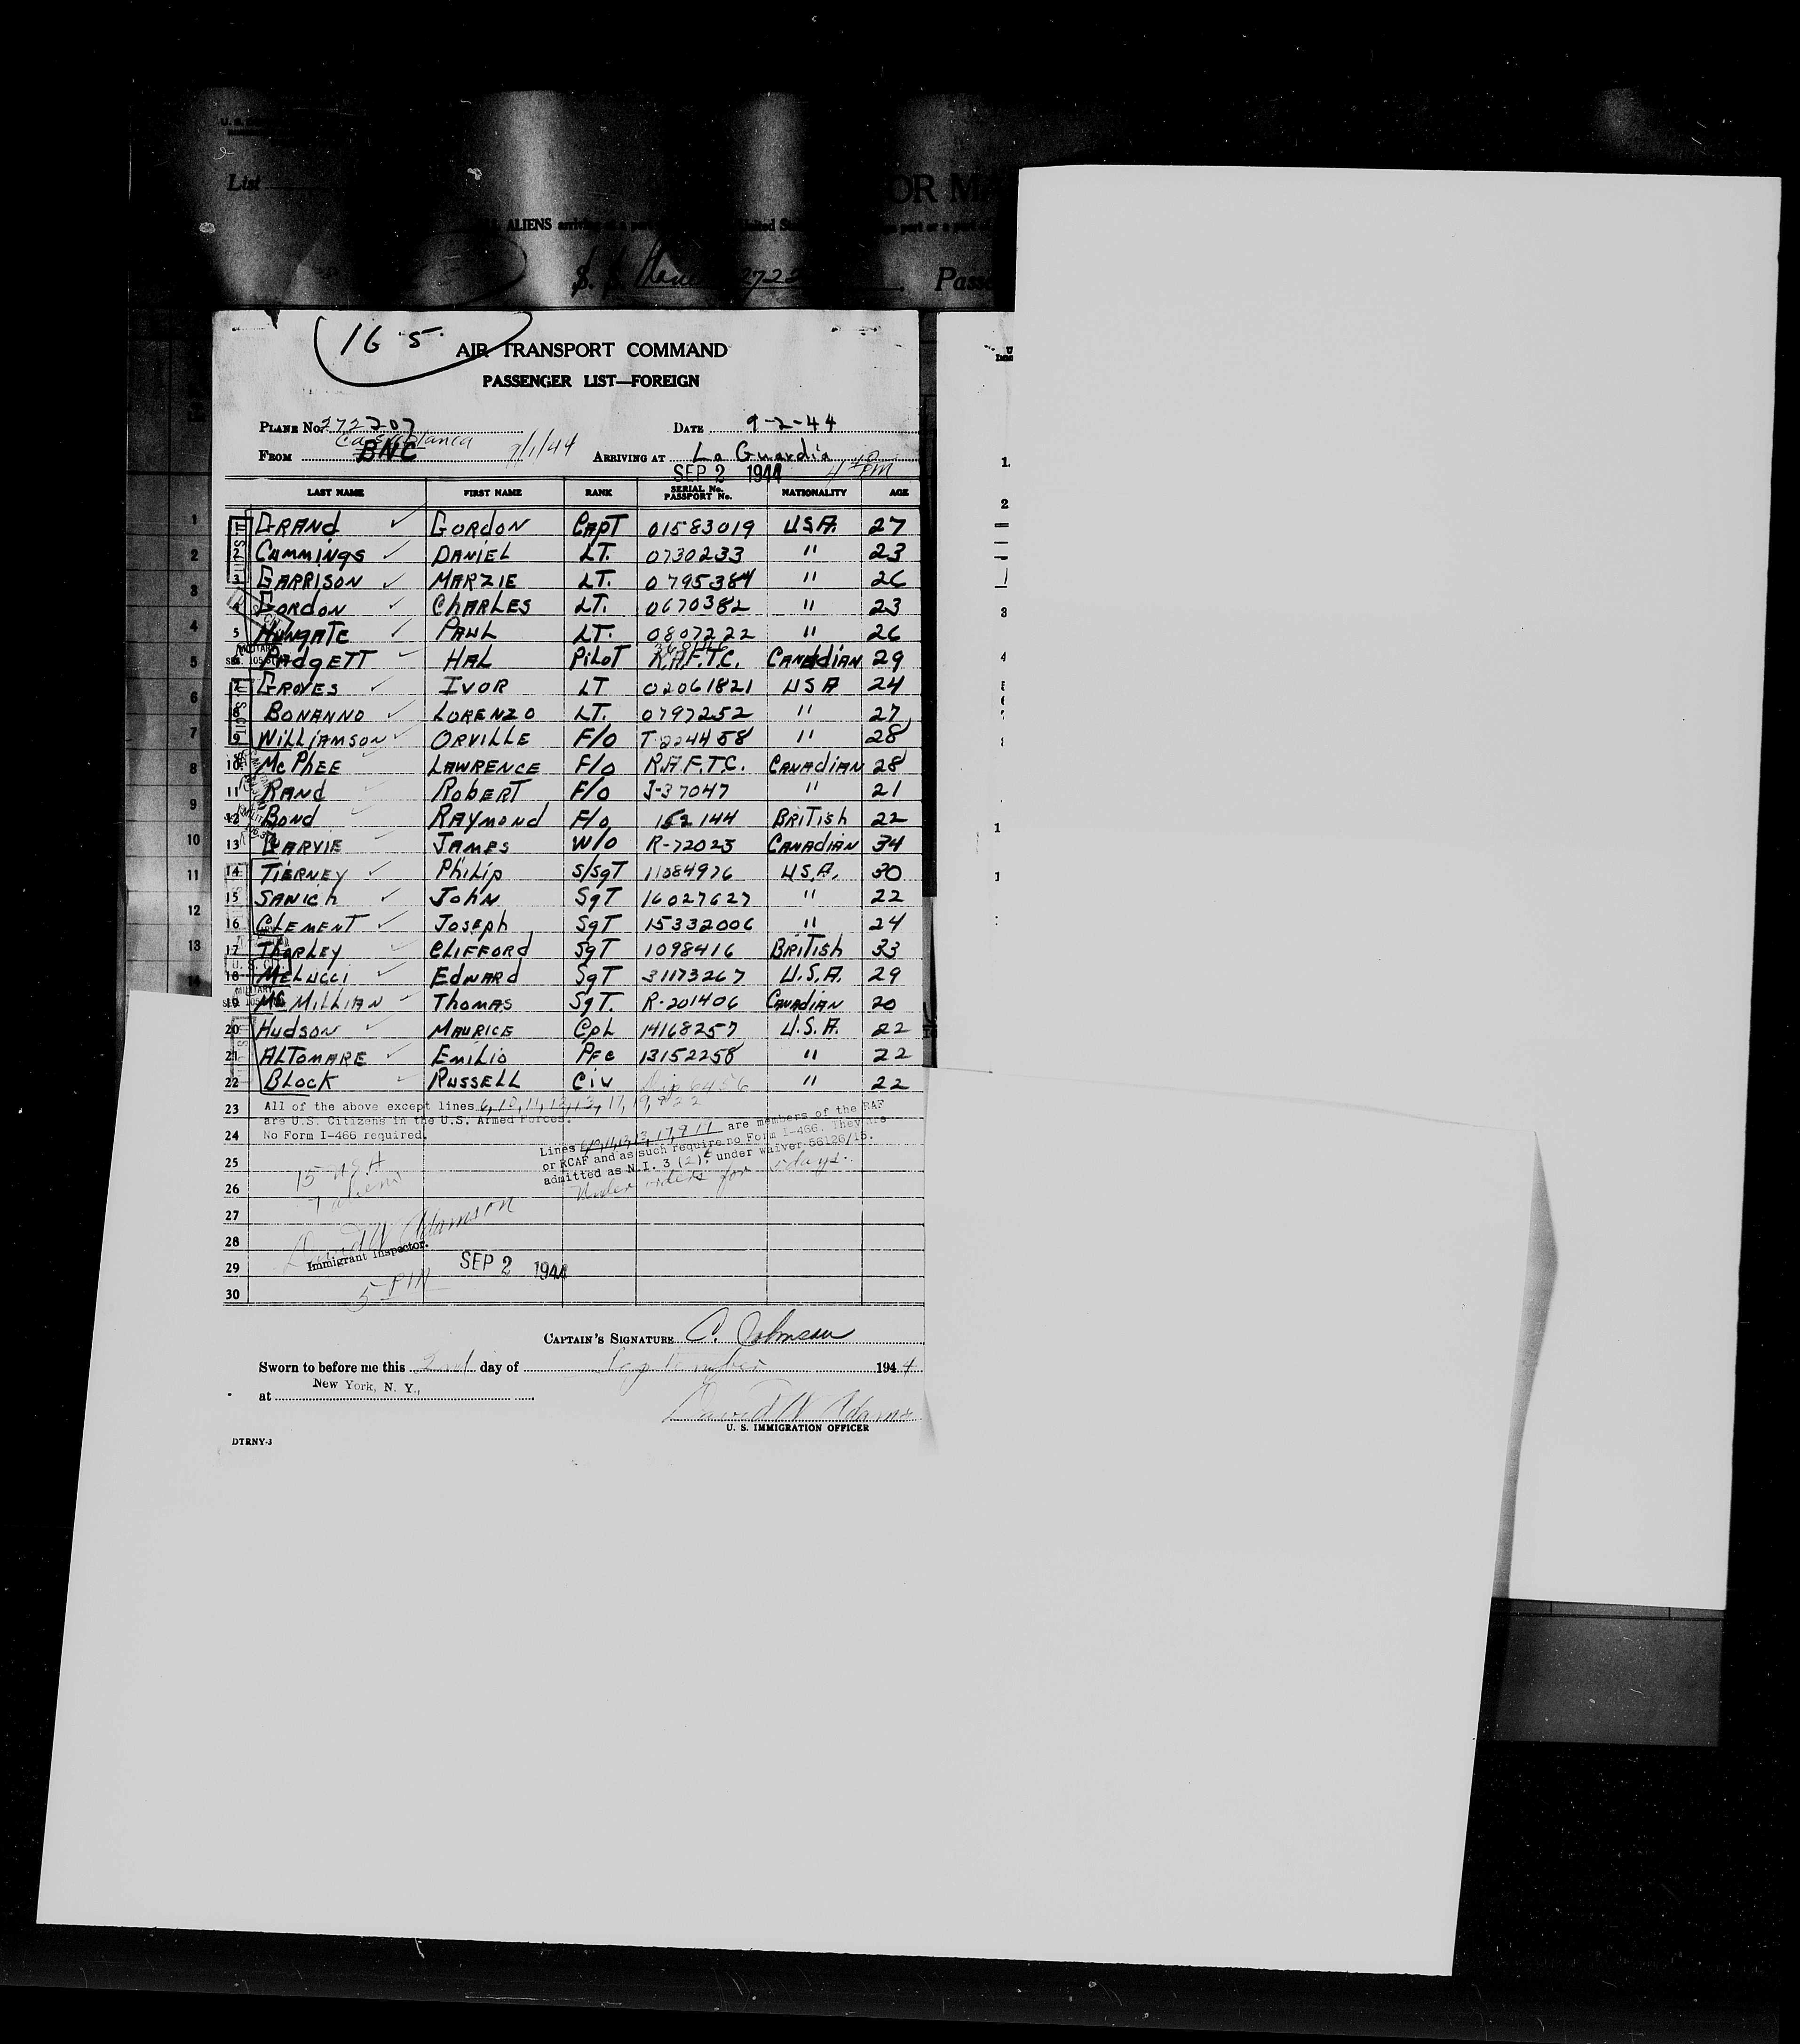 List
OR MA
ALIENS arriving at a port United
S. S. 2722
Pass
16-5
AIR TRANSPORT COMMAND
PASSENGER LIST—FOREIGN
PLANE No. 272207 DATE 9-2-44
Casablanca
FROM BNC 9/1/44 ARRIVING AT La Guardia
SEP 2 1944 4 40 PM
LAST NAME FIRST NAME RANK SERIAL No. PASSPORT No. NATIONALITY AGE
1 GRAND GORDON CAPT 01583019 USA. 27
2 CUMMINGS DANIEL LT. 0730233 " 23
3 GARRISON MARZIE LT. 0795384 " 26
4 GORDON CHARLES LT. 0670382 " 23
5 HUNGATE PAUL LT. 0807222 " 26
PADGETT HAL PILOT R.A.F.T.C. CANADIAN 29
7 GROVES IVOR LT 02061821 USA 24
8 BONANNO LORENZO LT. 0797252 " 27
9 WILLIAMSON ORVILLE F/O T-224458 " 28
10 McPHEE LAWRENCE F/O R.A.F.T.C. CANADIAN 28
11 RAND ROBERT F/O J-37047 " 21
12 BOND RAYMOND F/O 152144 BRITISH 22
13 GARVIE JAMES W/O R-72025 CANADIAN 34
14 TIERNEY PHILIP S/SGT 11084976 U.S.A. 30
15 SANICH JOHN SGT 16027627 " 22
16 CLEMENT JOSEPH SGT 15332006 " 24
17 THORLEY CLIFFORD SGT 1098416 BRITISH 33
18 MELUCCI EDWARD SGT 31173267 U.S.A. 29
19 McMILLIAN THOMAS SGT. R-201406 CANADIAN 20
20 HUDSON MAURICE CPL 14168257 U.S.A. 22
21 ALTOMARE EMILIO PFC 13152258 " 22
22 BLOCK RUSSELL CIV 6456 " 22
23 All of the above except lines 6, 10, 11, 12, 13, 17, 19, & 22
are U.S. Citizens in the U.S. Armed Forces.
24 No Form I-466 required.
Lines 6, 10, 11, 12, 13, 17, 9 19 are members of the RAF
or RCAF and as such require no Form I-466. They are
admitted as N.I. 3 (2). under waiver 56126/15.
Under orders for 5 days.
25
26
27
28
29
30
15 USA
7 aliens
David W Adamson
Immigrant Inspector.
SEP 2 1944
5 PM
CAPTAIN'S SIGNATURE C. Johnson
Sworn to before me this 2nd day of September 1944
at New York, N. Y.,
David W Adams
U. S. IMMIGRATION OFFICER
DTRNY-3